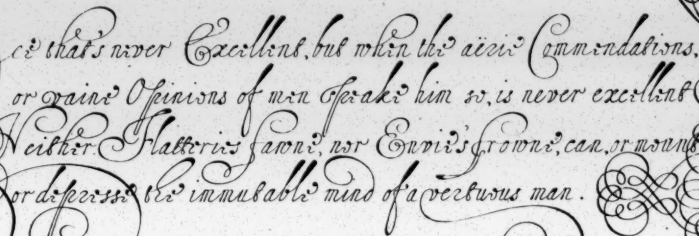 ce that's never Excellent, but when the aërie Commendations,
or vaine Opinions of men speake him so, is never excellent
Neither Flatteries fawne, nor Envie's frowne, can, or mount
or depresse the immutable mind of a vertuous man.